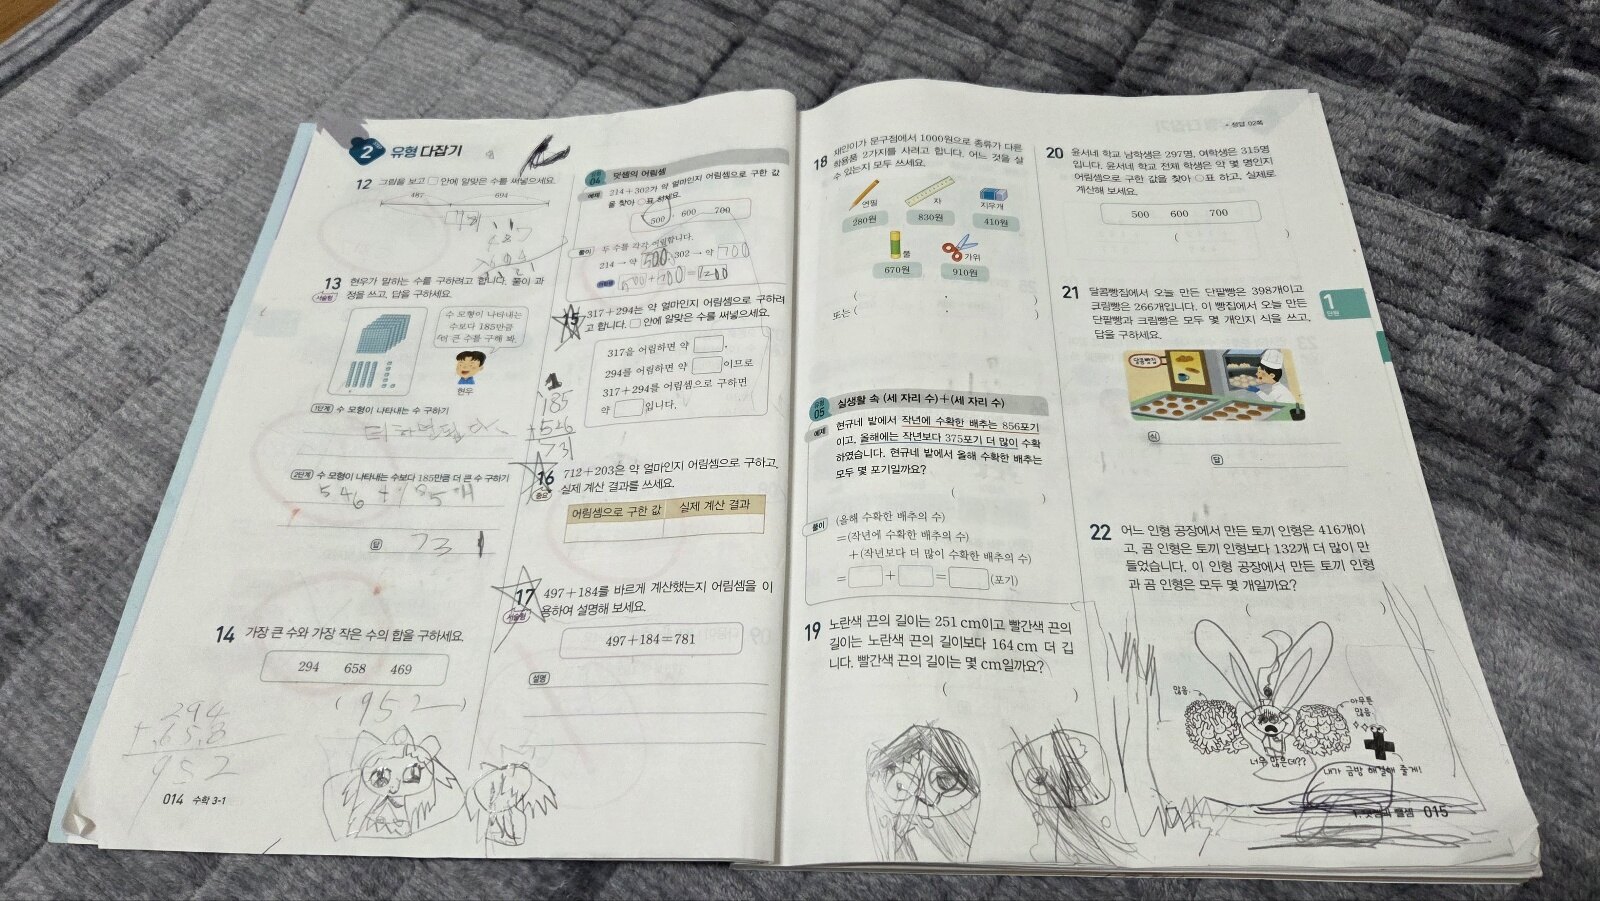 2 유형 다잡기
12 그림을 보고 □ 안에 알맞은 수를 써넣으세요.
487 694
13 현우가 말하는 수를 구하려고 합니다. 풀이 과
서술형 정을 쓰고, 답을 구하세요.
수 모형이 나타내는
수보다 185만큼
더 큰 수를 구해 봐.
현우
1단계 수 모형이 나타내는 수 구하기
2단계 수 모형이 나타내는 수보다 185만큼 더 큰 수 구하기
546 + 185
답 731
14 가장 큰 수와 가장 작은 수의 합을 구하세요.
294 658 469
( 952 )
294
+ 658
952
014 수학 3-1
유형 04 덧셈의 어림셈
예제 214+302가 약 얼마인지 어림셈으로 구한 값
을 찾아 ○표 하세요.
500 600 700
풀이 두 수를 각각 어림합니다.
214 → 약 500, 302 → 약 700
500+700=1200
15 317+294는 약 얼마인지 어림셈으로 구하려
고 합니다. □ 안에 알맞은 수를 써넣으세요.
317을 어림하면 약 □,
294를 어림하면 약 □이므로
317+294를 어림셈으로 구하면
약 □입니다.
1
185
+546
731
16 712+203은 약 얼마인지 어림셈으로 구하고,
중요 실제 계산 결과를 쓰세요.
어림셈으로 구한 값 실제 계산 결과
17 497+184를 바르게 계산했는지 어림셈을 이
서술형 용하여 설명해 보세요.
497+184=781
설명
18 채민이가 문구점에서 1000원으로 종류가 다른
학용품 2가지를 사려고 합니다. 어느 것을 살
수 있는지 모두 쓰세요.
연필 자 지우개
280원 830원 410원
풀 가위
670원 910원
( , )
또는 ( , )
유형 05 실생활 속 (세 자리 수)+(세 자리 수)
예제 현규네 밭에서 작년에 수확한 배추는 856포기
이고, 올해에는 작년보다 375포기 더 많이 수확
하였습니다. 현규네 밭에서 올해 수확한 배추는
모두 몇 포기일까요?
( )
풀이 (올해 수확한 배추의 수)
=(작년에 수확한 배추의 수)
+(작년보다 더 많이 수확한 배추의 수)
=□+□=□(포기)
19 노란색 끈의 길이는 251 cm이고 빨간색 끈의
길이는 노란색 끈의 길이보다 164 cm 더 깁
니다. 빨간색 끈의 길이는 몇 cm일까요?
( )
정답 02쪽
20 윤서네 학교 남학생은 297명, 여학생은 315명
입니다. 윤서네 학교 전체 학생은 약 몇 명인지
어림셈으로 구한 값을 찾아 ○표 하고, 실제로
계산해 보세요.
500 600 700
( )
21 달콤빵집에서 오늘 만든 단팥빵은 398개이고
크림빵은 266개입니다. 이 빵집에서 오늘 만든
단팥빵과 크림빵은 모두 몇 개인지 식을 쓰고,
답을 구하세요.
달콤빵집
식
답
1
단원
22 어느 인형 공장에서 만든 토끼 인형은 416개이
고, 곰 인형은 토끼 인형보다 132개 더 많이 만
들었습니다. 이 인형 공장에서 만든 토끼 인형
과 곰 인형은 모두 몇 개일까요?
( )
많음.
아무튼
많음.
너무 많은데??
내가 금방 해결해 줄게!
1. 덧셈과 뺄셈 015